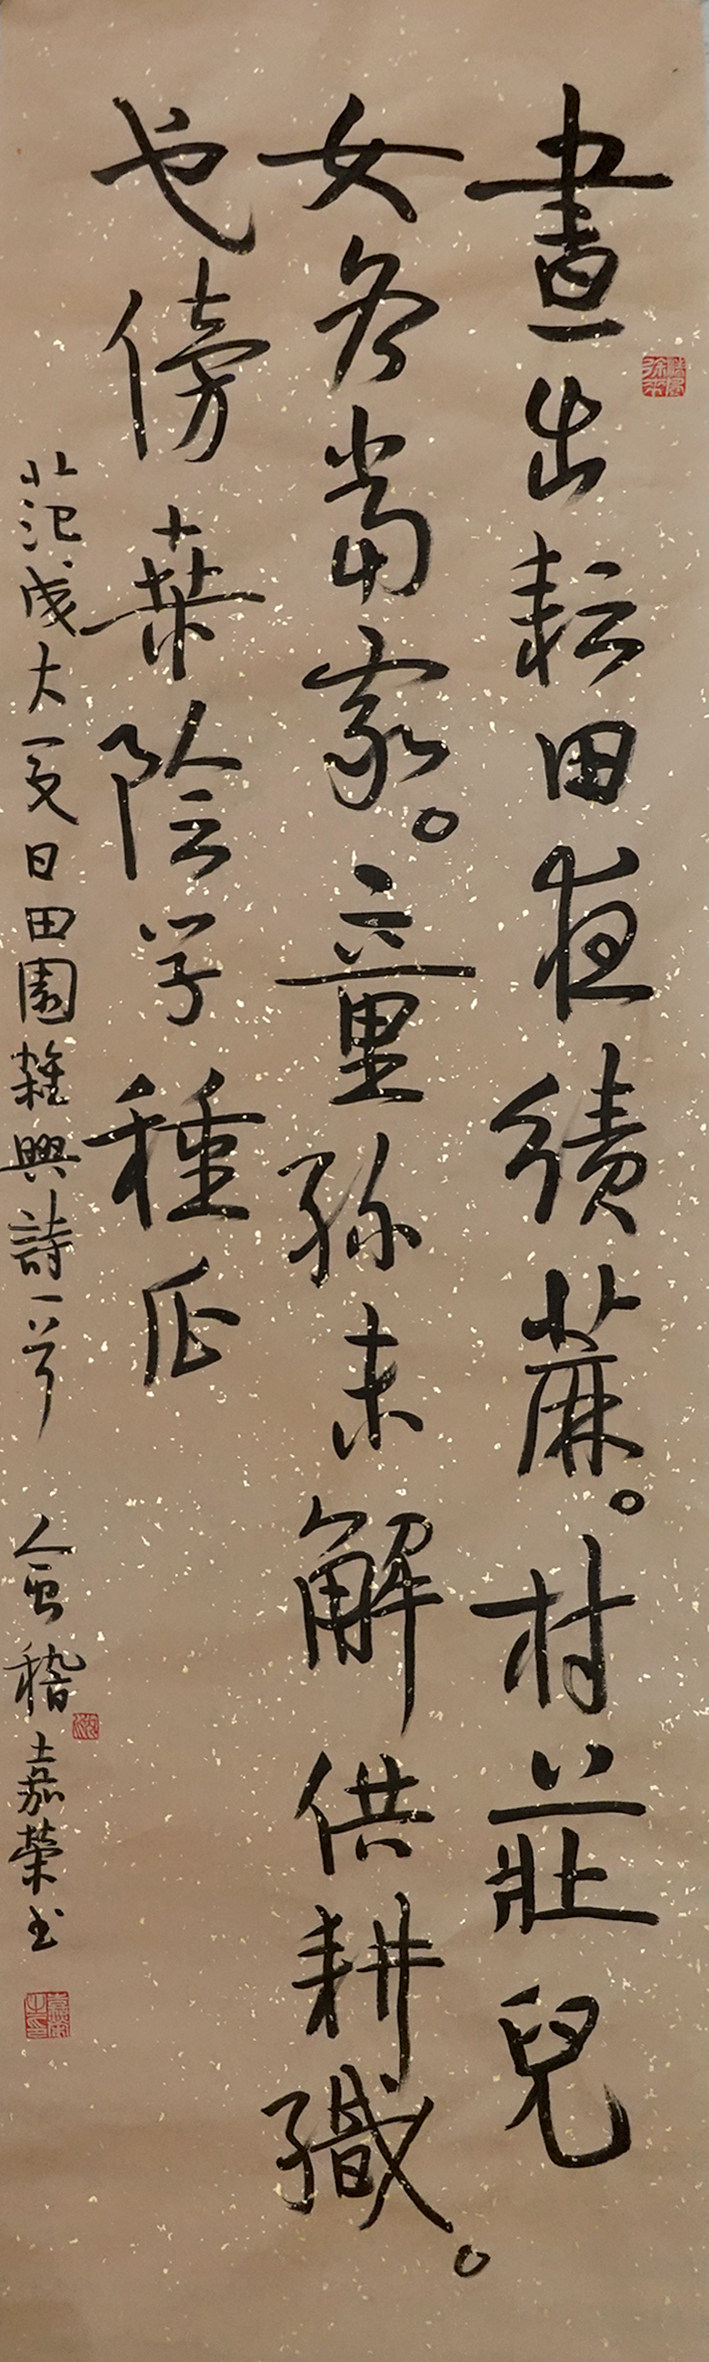 晝出耘田夜績蔴。村莊兒
女各當家。童孫未解供耕織。
也傍桑陰学種瓜
范成大夏日田園雜興詩一首 會稽嘉榮书